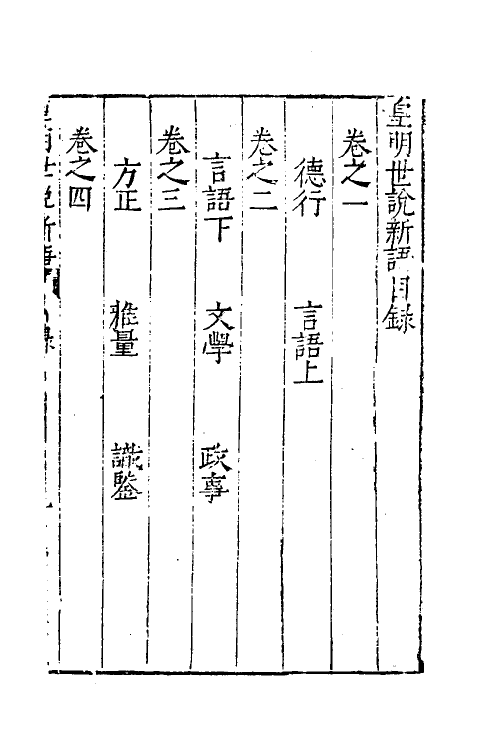 皇明世說新語目錄
卷之一
德行 言語上
卷之二
言語下 文學 政事
卷之三
方正 雅量 識鑒
卷之四